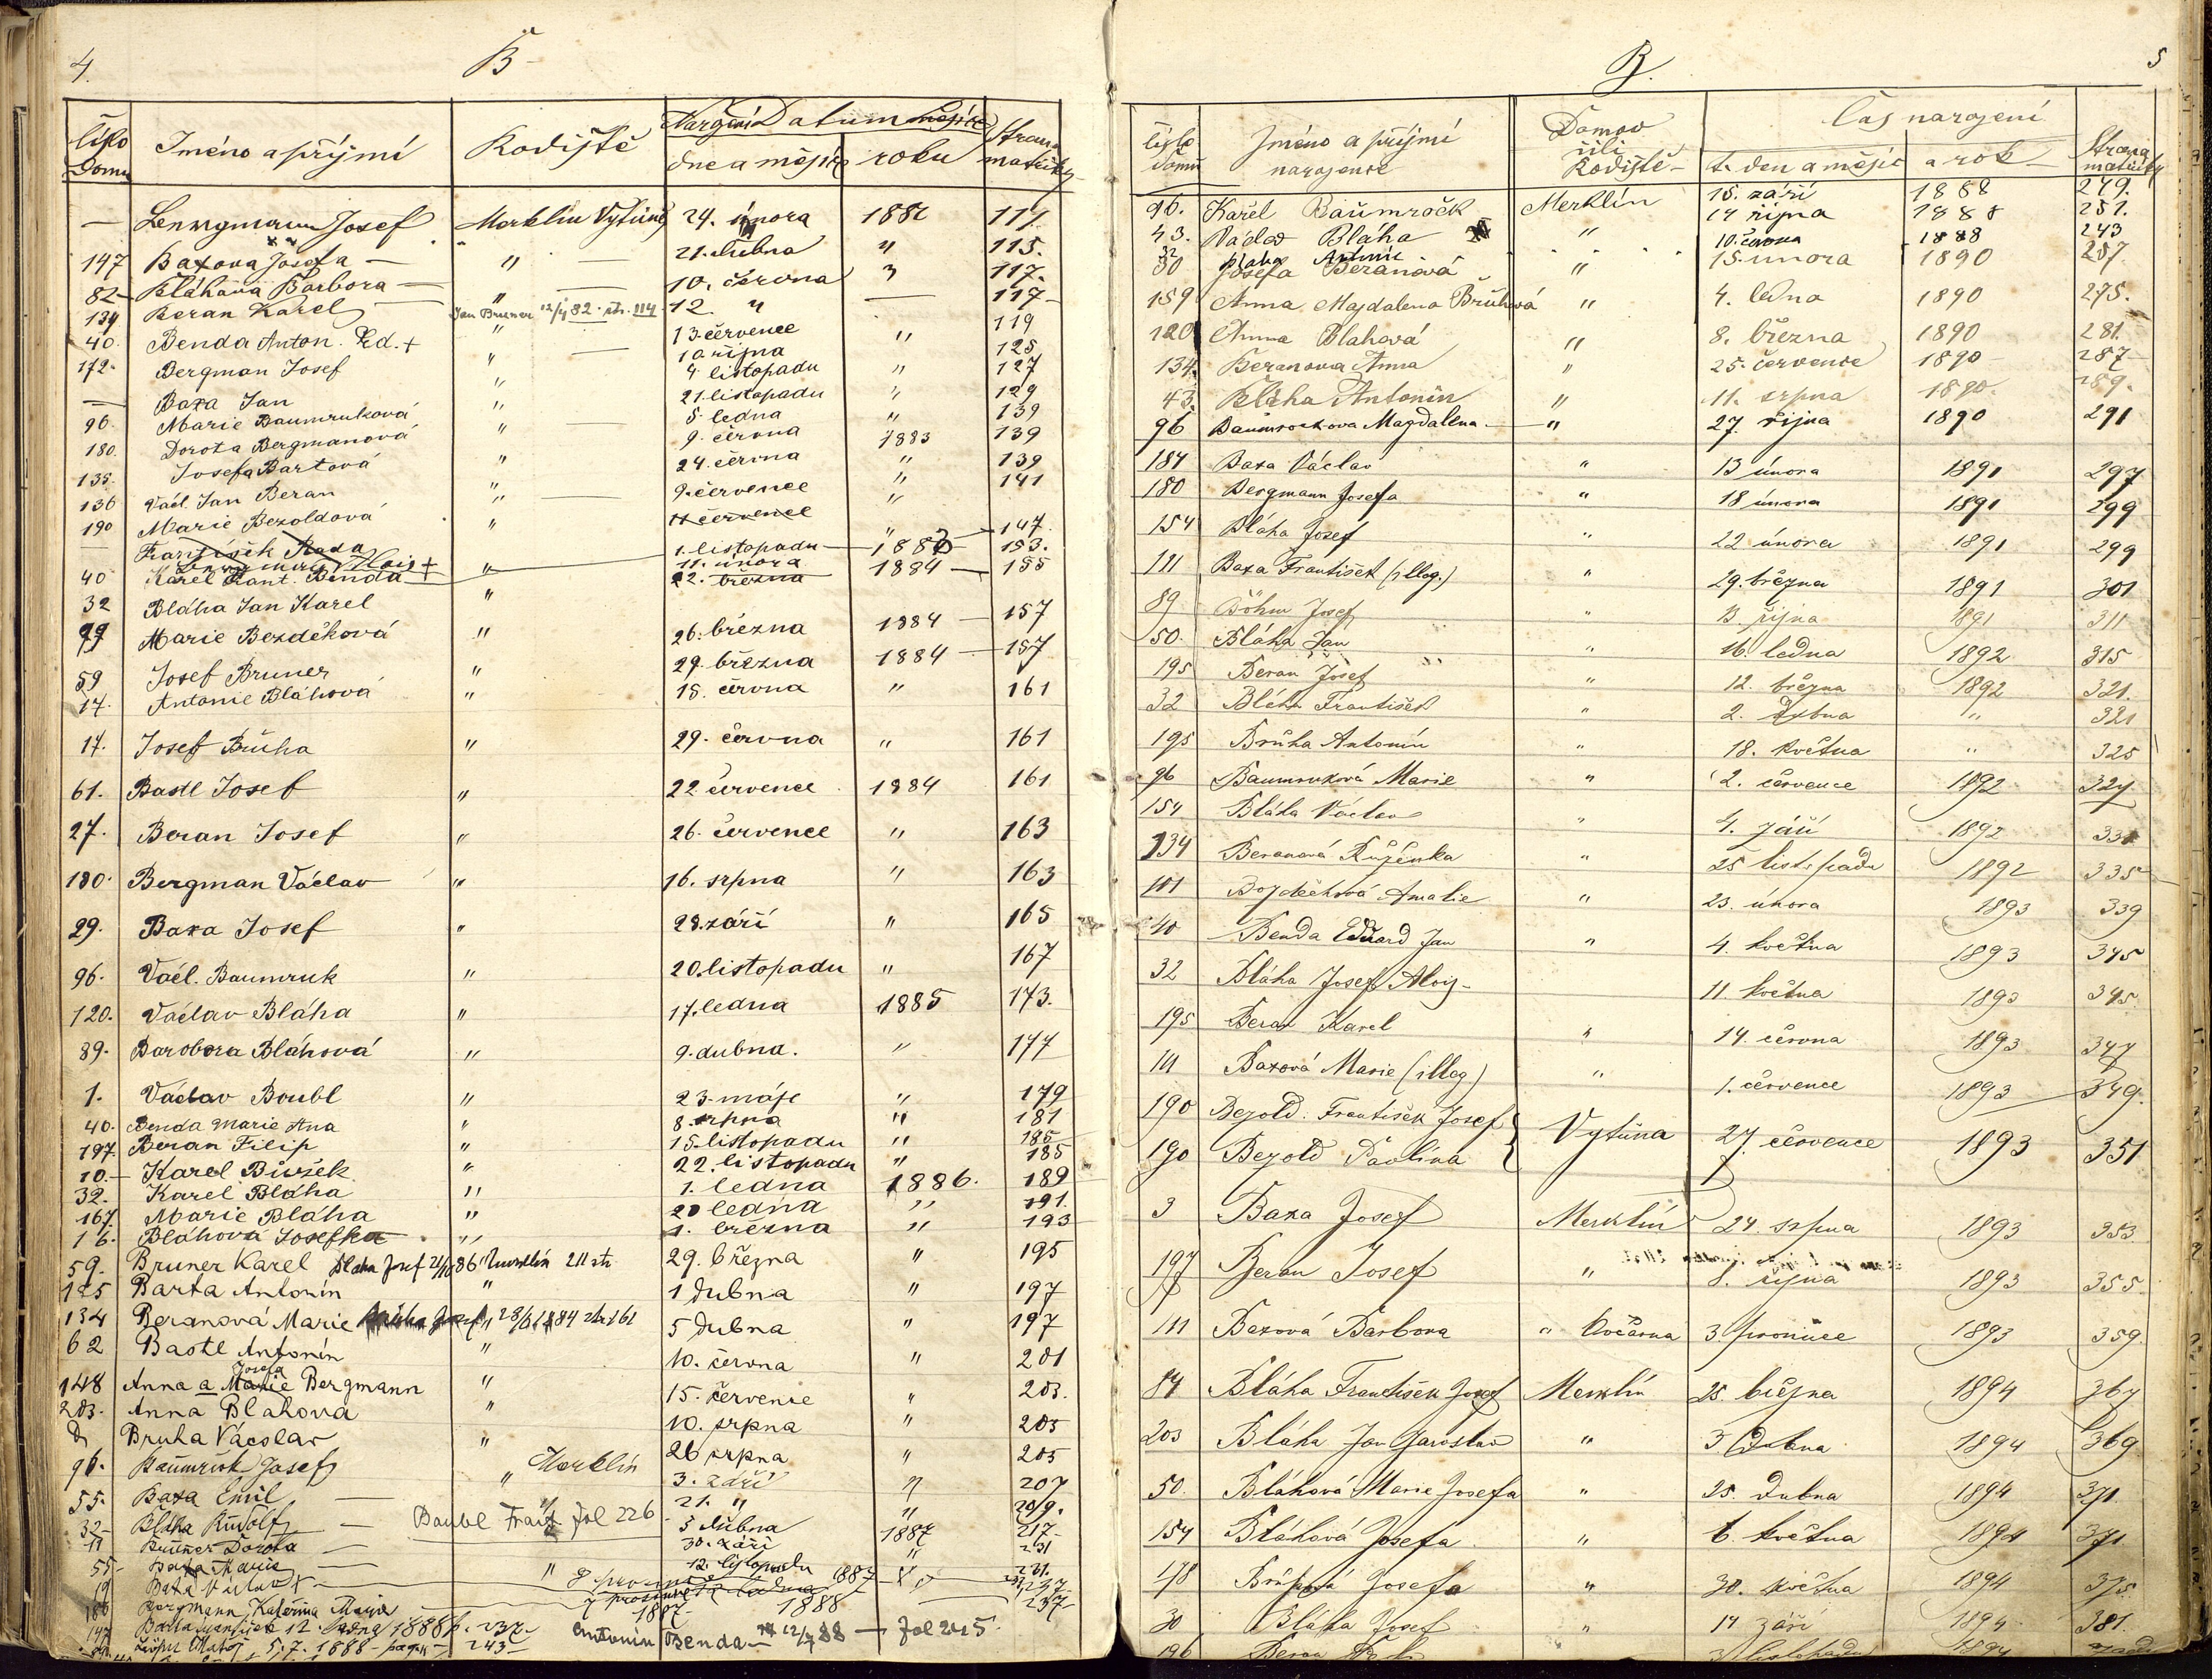 4.
B
Číslo Domu Jméno a příjmí Rodiště Datum dne a měsíce roku Strana matriky
— Josef Merklin Vytůně 24. února 1882 111.
147 Baxova Josefa — " — 21. dubna " 115.
82 Bláhova Barbora — " — 10. června " 117.
134 Beran Karel Jan Bruner 12/4 82 str. 114 12. " — 117
40. Benda Anton. Ed. + " — 13 července " 119
172. Bergman Josef " 10 října 125
— Baxa Jan " 4 listopadu " 127
96. Marie Baumruková " 21. listopadu " 129
180. Dorota Bergmanová " 5. ledna " 139
135. Josefa Bartová " 9. června 1883 139
136 Václ. Jan Beran " 24. června " 139
190 Marie Bezoldová " 9. července " 141
— František Rada " 11 července " 147.
1. listopadu 1883 153.
40 Karel Benda " 11. února 1884 155
32 Bláha Jan Karel " 22. března
99 Marie Bezděková " 26. března 1884 157
59 Josef Bruner " 29. března 1884 157
17. Antonie Bláhová " 15. června " 161
17. Josef Brůha " 29. června " 161
61. Bastl Josef " 22 července 1884 161
27. Beran Josef " 26. července " 163
180. Bergman Václav " 16. srpna " 163
29. Baxa Josef " 28. září " 165
96. Václ. Baumruk " 20. listopadu " 167
120. Václav Bláha " 17. ledna 1885 173.
89. Barobora Bláhová " 9. dubna. " 177
1. Václav Boubl " 23. máje " 179
40. Benda Marie Ana " 8. srpna " 181
197. Beran Filip " 15. listopadu " 185
10. Karel " 22. listopadu " 185
32. Karel Bláha " 1. ledna 1886. 189
167. Marie Bláha " 20 ledna " 191.
16. Bláhová Josefka " 1. března " 193
59. Bruner Karel Blaha Josef 86 Merklín 211 str. 29. března " 195
125 Barta Antonín " 1 dubna " 197
134 Beranová Marie 28/6 1884 str. 161 5 dubna " 197
62 Bastl Antonín " 10. června " 201
148 Anna a Marie Josefa Bergmann " 15. července " 203.
203. Anna Blahova " 10. srpna " 205
Bruha Václav " 26 srpna " 205
96. Baumruk Josef " Merklín 3. září " 207
55. Baxa Emil — " 21. " " 209.
32 Bláha Rudolf — Baubl Frant fol 226 3 dubna 1887 217
11 Bruner Dorota — 30. září " 231
55 Baxa Marie — " 12. listopadu 231.
19 Baxa Václav + — 8 prosince 1887
186 Bergmann Kateřina Marie 1887 1888 237
147 12. ledna 1888 p. 237 Antonín Benda 12/7 88 — fol 245.
Matěj 5. 7. 1888 pag. 243
B.
5
číslo domu Jméno a příjmí narozence Domov čili Rodiště Čas narození t. den a měsíc a rok Strana matriky
96. Karel Baumroček Merklín 15. září 1888 249.
43. Václav Bláha " 14 října 1888 251.
32 Blaha Antonín 10. června 1888 243
30 Josefa Beranová " 15. února 1890 257
159 Anna Magdalena Brůhová " 4. ledna 1890 275.
120 Anna Blahová " 8. března 1890 281.
134. Beranova Anna " 25. července 1890 287
43. Bláha Antonín " 11. srpna 1890. 289.
96 Baumrockova Magdalena — " 27. října 1890 291
184 Baxa Václav " 13 února 1891 297
180 Bergmann Josefa " 18 února 1891 299
154 Bláha Josef " 22 února 1891 299
111 Baxa František (illeg.) " 29. března 1891 301
89 Böhm Josef " 13. října 1891 311
50. Bláha Jan " 16. ledna 1892 315
195 Beran Josef " 12. března 1892 321.
32 Bláha František " 2. dubna " 321
195 Brůha Antonín " 18. května " 325
96 Baumruková Marie " 2. července 1892 327
154 Bláha Václav " 4. září 1892 331
134 Beranová Růženka " 25 listopadu 1892 335
101 Bozděchová Amalie " 23. února 1893 339
40 Benda Eduard Jan " 4. května 1893 345
32 Bláha Josef Alois 11. května 1893 345.
195 Beran Karel " 14. června 1893 347
111 Baxová Marie (illeg) " 1. července 1893 349.
190 Bezold. František Josef } Vytůna 27. července 1893 351
190 Bezold Pavlína
3 Baxa Josef Merklín 24. srpna 1893 353
197 Beran Josef " 8. října 1893 355.
111 Baxová Barbora " Kočárna 3. prosince 1893 359.
84 Bláha František Josef Merklín 25. března 1894 367
203 Bláha Jan Jaroslav " 3 dubna 1894 369
50. Bláhová Marie Josefa " 25. dubna 1894 371
154 Bláhová Josefa " 6. května 1894 371
178 Josefa " 30. května 1894 375
30 Bláha Josef " 14 září 1894 381.
196 Beran listopadu 1894